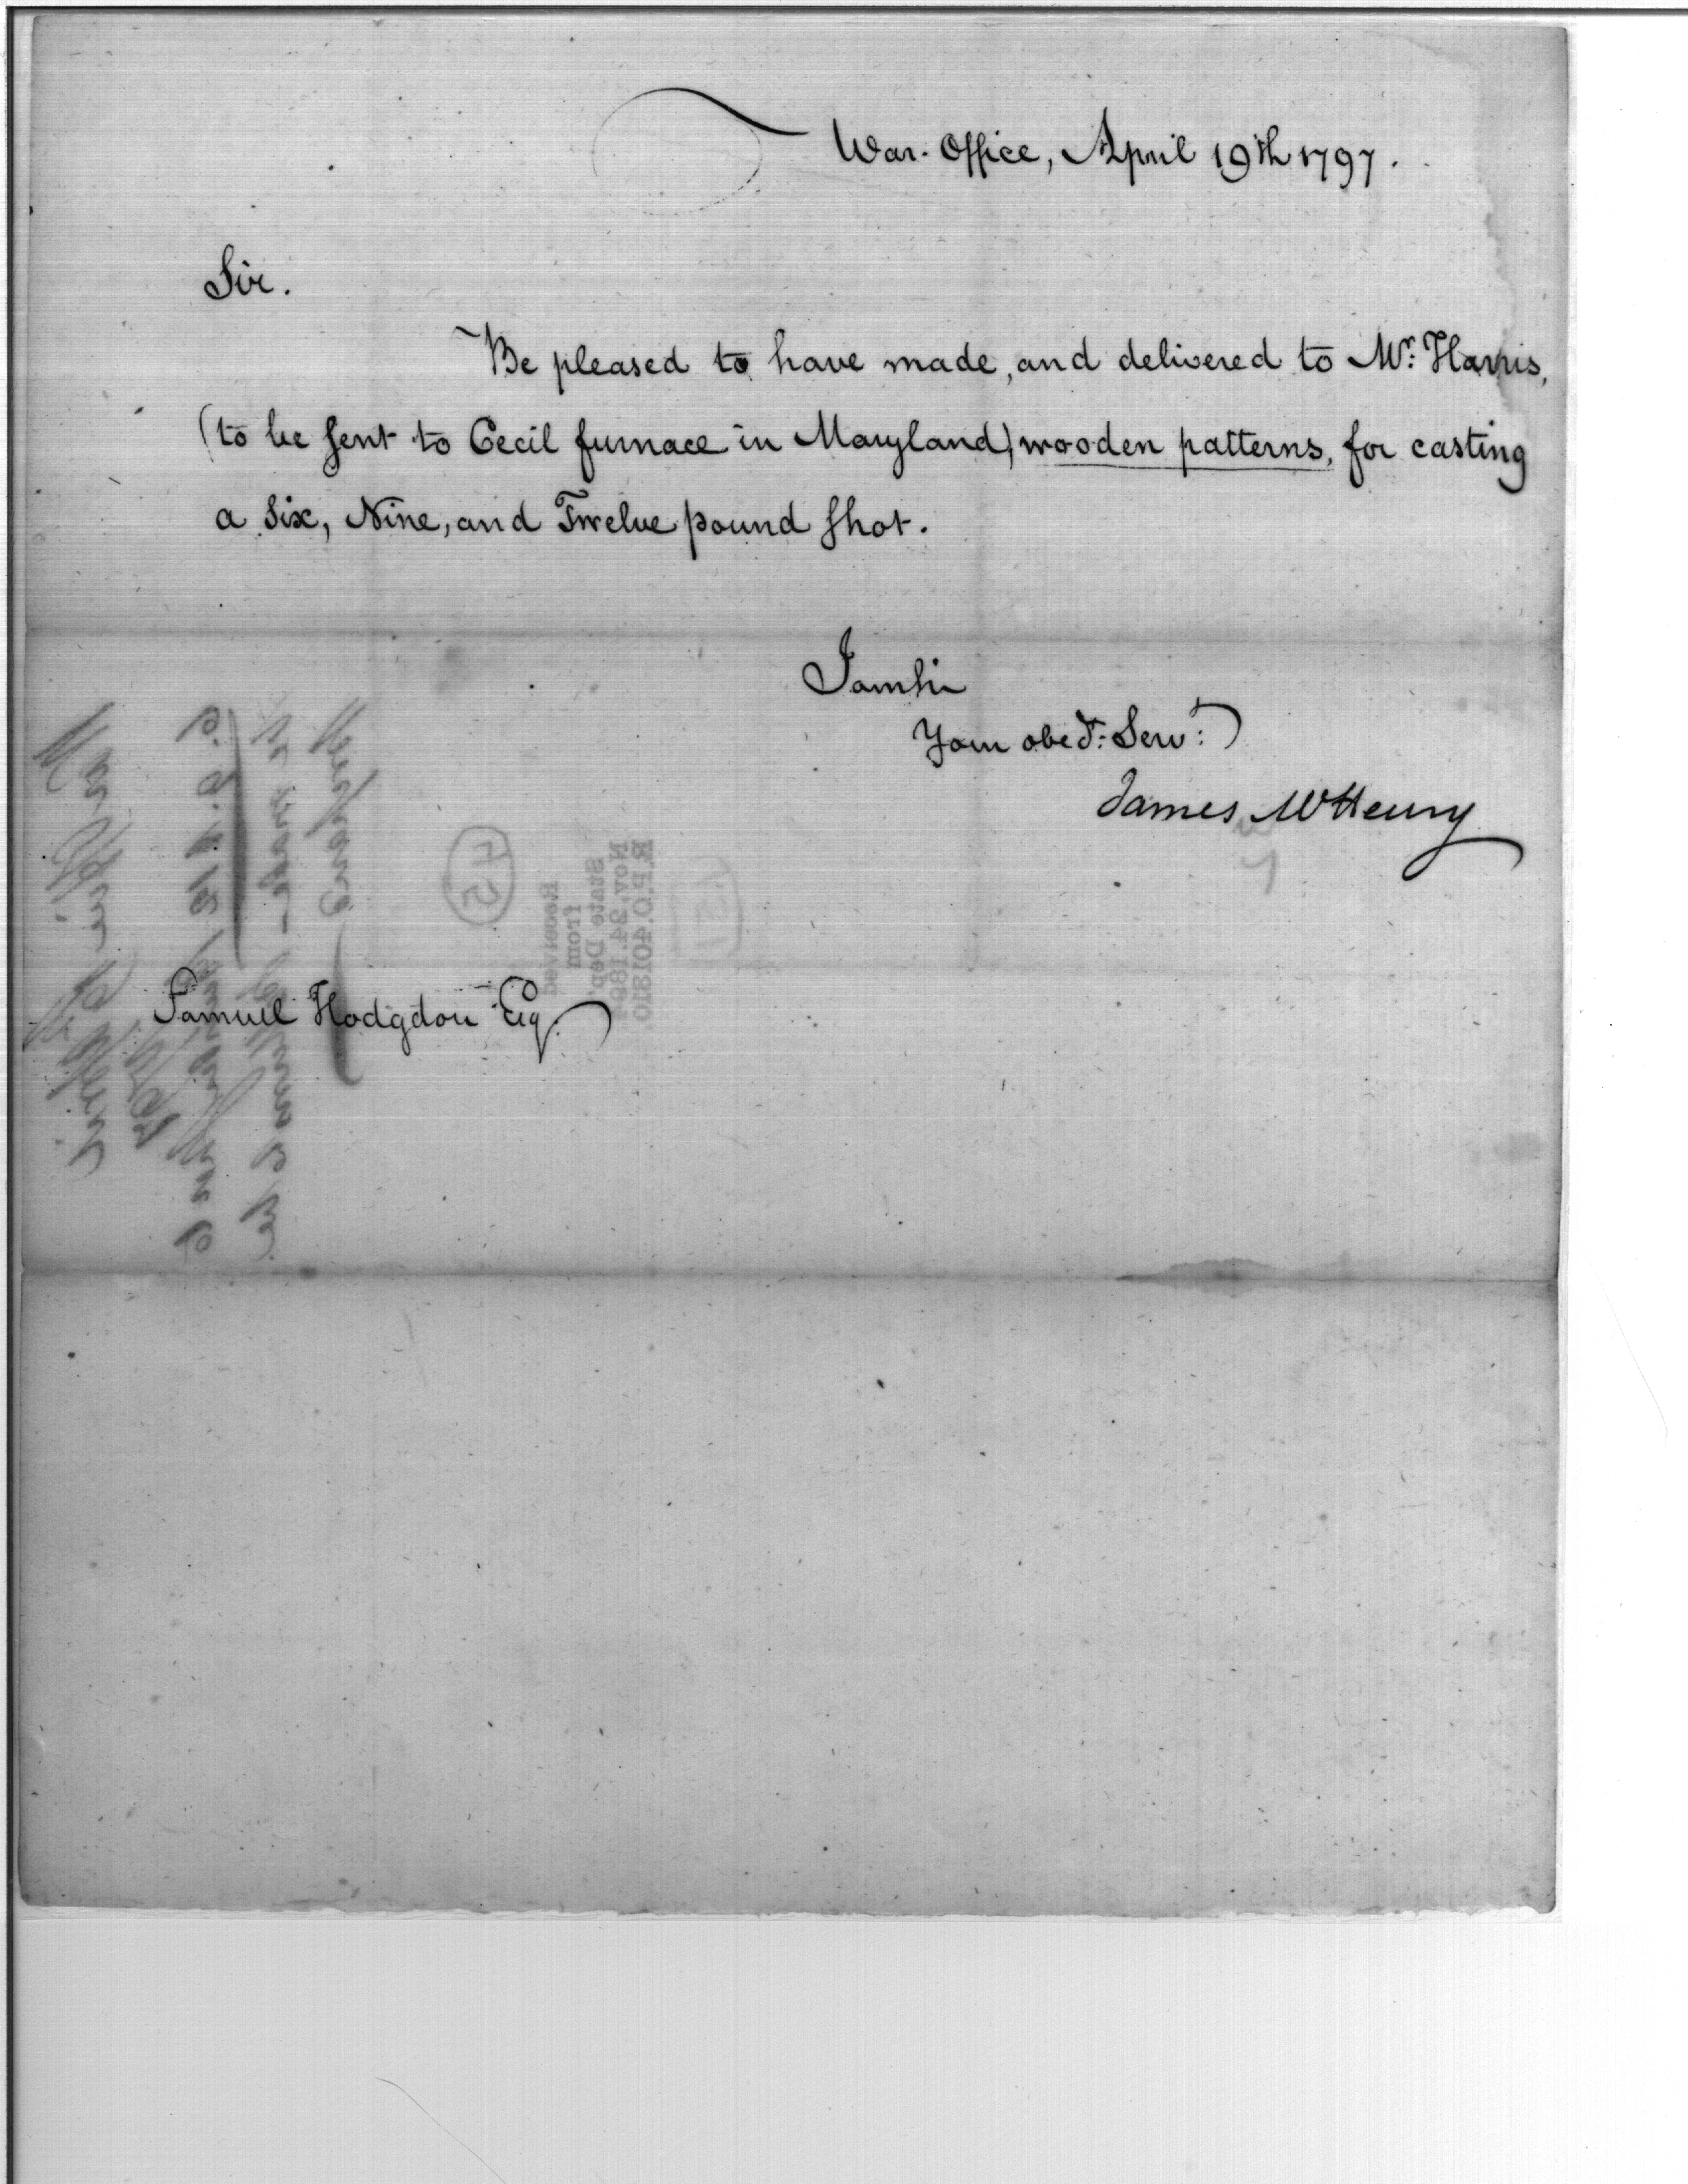 War-Office, April 19th 1797.
Sir.
Be pleased to have made, and delivered to Mr: Harris,
(to be sent to Cecil furnace in Maryland) wooden patterns, for casting
a Six, Nine, and Twelve pound shot.
I am Sir
Your obedt: Servt:
James McHenry
Samuel Hodgdon Esq.
45
Received
from
State Dep't
R.P.D. 401810.